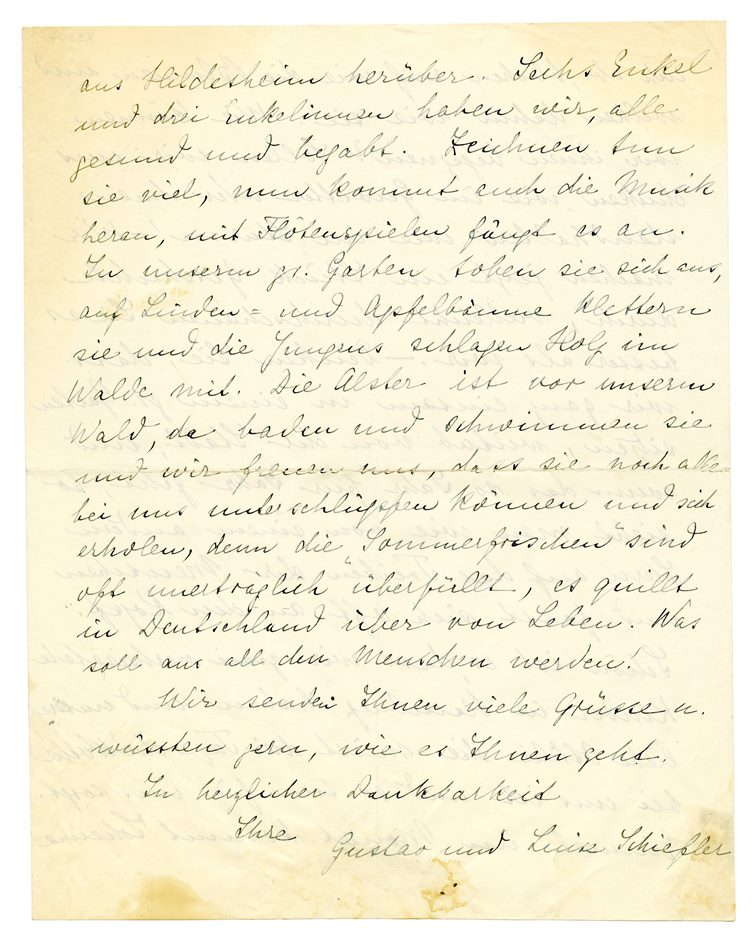 aus Hildesheim herüber. Sechs Enkel
und drei Enkelinnen haben wir, alle
gesund und begabt. Zeichnen tun
sie viel, nun kommt auch die Musik
heran, mit Flötenspielen fängt es an.
In unserm gr. Garten toben sie sich aus,
auf Linden= und Apfelbäume klettern
sie und die Jungens schlagen Holz im
Walde mit. Die Alster ist vor unserm
Wald, da baden und schwimmen sie
und wir freuen uns, dass sie noch alle
bei uns unterschlüpfen können und sich
erholen, denn die „Sommerfrischen" sind
oft unerträglich überfüllt, es quillt
in Deutschland über von Leben. Was
soll aus all den Menschen werden!
Wir senden Ihnen viele Grüsse u.
wüssten gern, wie es Ihnen geht.
In herzlicher Dankbarkeit
Ihre
Gustav und Luise Schiefler